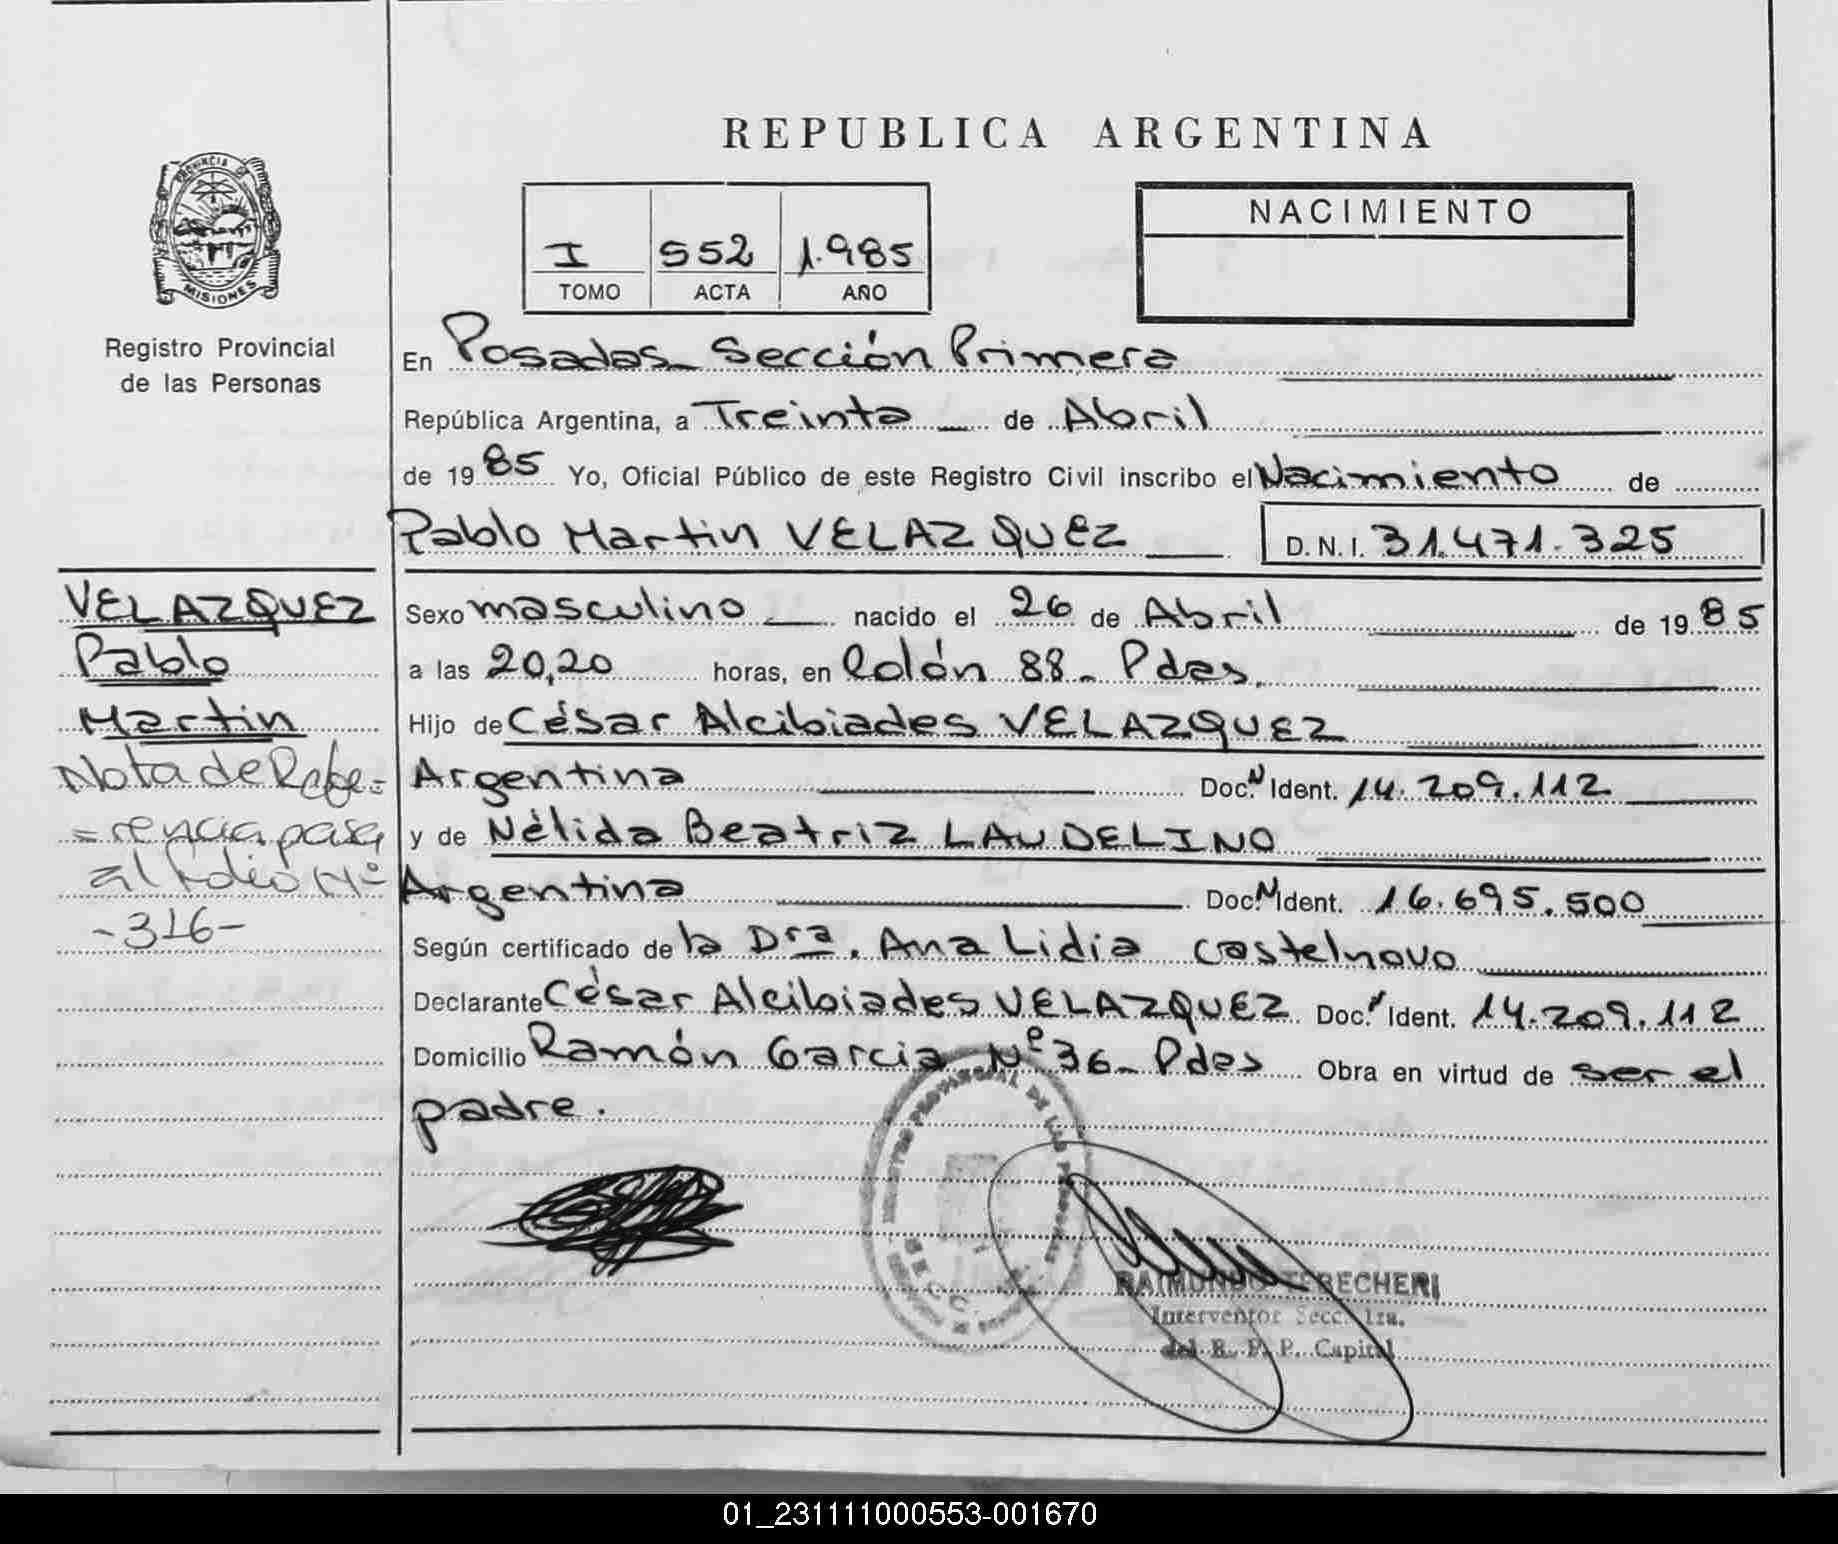 REPUBLICA ARGENTINA
PROVINCIA DE
MISIONES
Registro Provincial
de las Personas
I 552 1.985
TOMO ACTA AÑO
NACIMIENTO
En Posadas_ Sección Primera
República Argentina, a Treinta _ de Abril
de 1985 Yo, Oficial Público de este Registro Civil inscribo el Nacimiento de
Pablo Martin VELAZQUEZ D.N.I. 31.471.325
VELAZQUEZ
Pablo
Martin
Nota de Refe=
=rencia pasa
al folio Nº
-316-
Sexo masculino nacido el 26 de Abril de 1985
a las 20,20 horas, en Colón 88_ Pdas.
Hijo de César Alcibiades VELAZQUEZ
Argentina Doc. N Ident. 14.209.112
y de Nélida Beatriz LAUDELINO
Argentina Doc. N Ident. 16.695.500
Según certificado de la Dra. Ana Lidia Castelnovo
Declarante César Alcibiades VELAZQUEZ Doc. Ident. 14.209.112
Domicilio Ramón Garcia Nº 36_ Pdas Obra en virtud de ser el
padre.
REGISTRO PROVINCIAL DE LAS PERSONAS
RAIMUNDO TERECHERI
Interventor Secc. 1ra.
del R. P. P. Capital
01_231111000553-001670